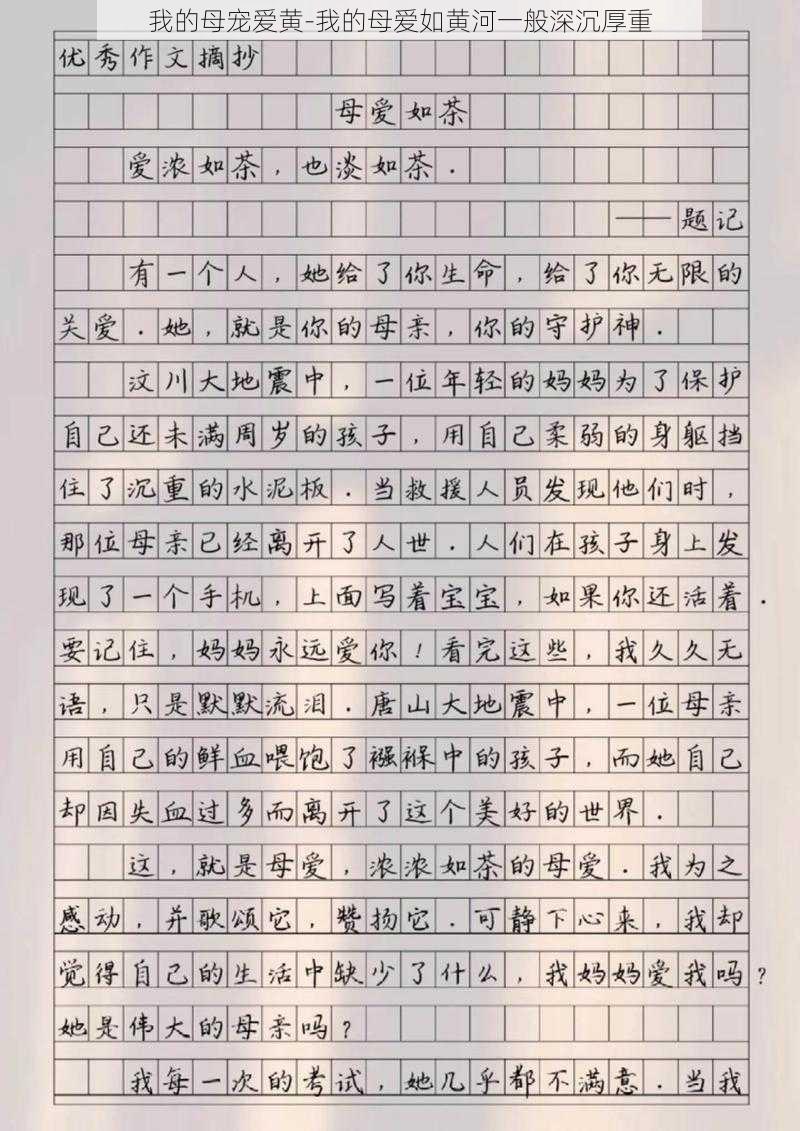 我的母宠爱黄-我的母爱如黄河一般深沉厚重
优秀作文摘抄
母爱如茶
爱浓如茶，也淡如茶．
——题记
有一个人，她给了你生命，给了你无限的
关爱．她，就是你的母亲，你的守护神．
汶川大地震中，一位年轻的妈妈为了保护
自己还未满周岁的孩子，用自己柔弱的身躯挡
住了沉重的水泥板．当救援人员发现他们时，
那位母亲已经离开了人世．人们在孩子身上发
现了一个手机，上面写着宝宝，如果你还活着．
要记住，妈妈永远爱你！看完这些，我久久无
语，只是默默流泪．唐山大地震中，一位母亲
用自己的鲜血喂饱了襁褓中的孩子，而她自己
却因失血过多而离开了这个美好的世界．
这，就是母爱，浓浓如茶的母爱．我为之
感动，并歌颂它，赞扬它．可静下心来，我却
觉得自己的生活中缺少了什么，我妈妈爱我吗？
她是伟大的母亲吗？
我每一次的考试，她几乎都不满意．当我